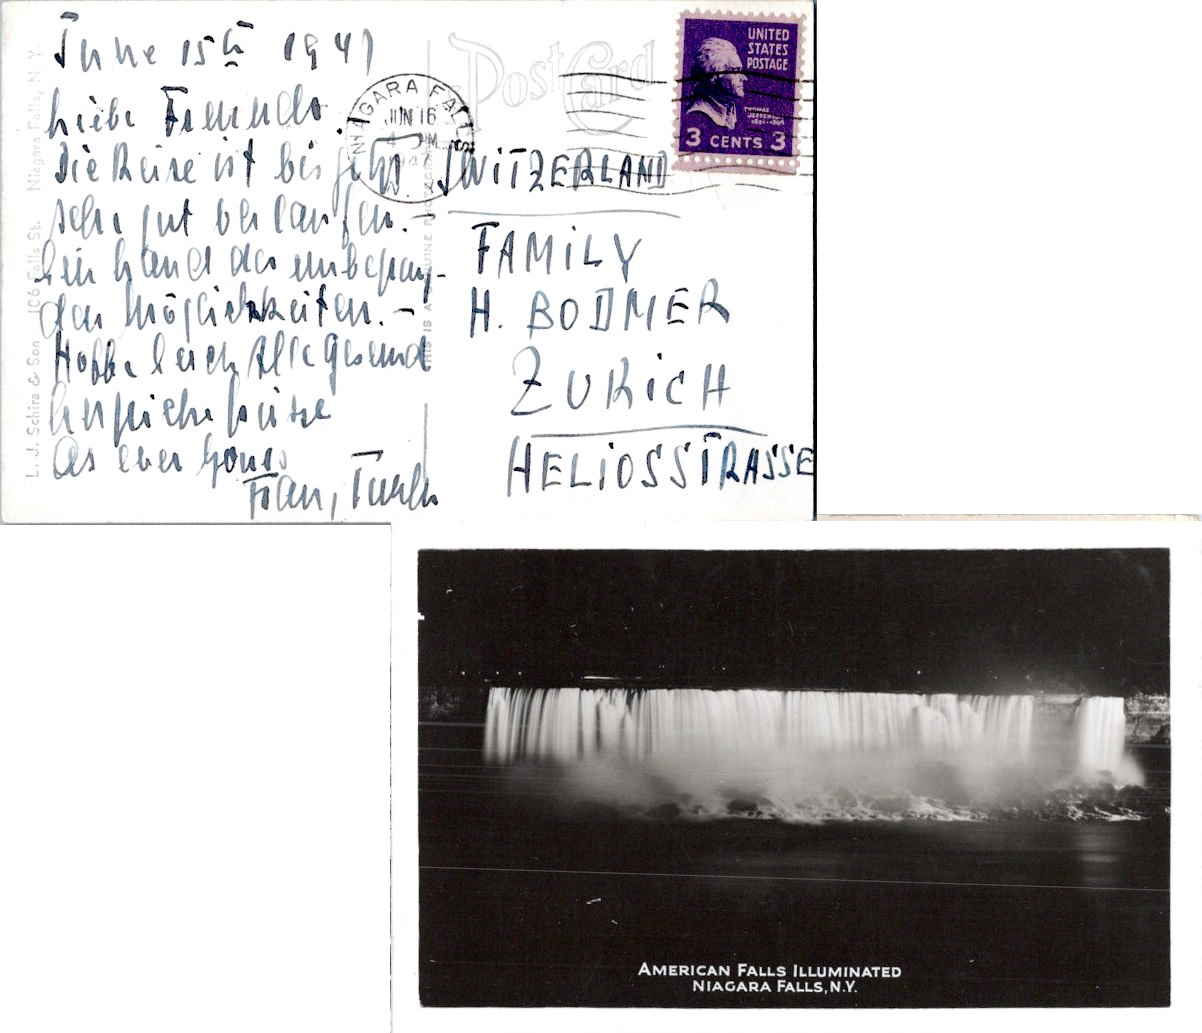 June 15th 1947
Liebe Freunde.
Die Reise ist bis jetzt
sehr gut verlaufen. -
Ein Land der unbegren-
zten Möglichkeiten. -
Hoffe Euch Alle Gesund
herzliche Grüsse
As ever yours
PostCard
UNITED
STATES
POSTAGE
THOMAS
JEFFERSON
3 CENTS 3
NIAGARA FALLS
JUN 16
PM
SWITZERLAND
FAMiLY
H. BODMER
ZURiCH
HELiOSSTRASSE
L. J. Schira & Son 106 Falls St. Niagara Falls, N. Y.
THIS IS A GENUINE
AMERICAN FALLS ILLUMINATED
NIAGARA FALLS, N.Y.